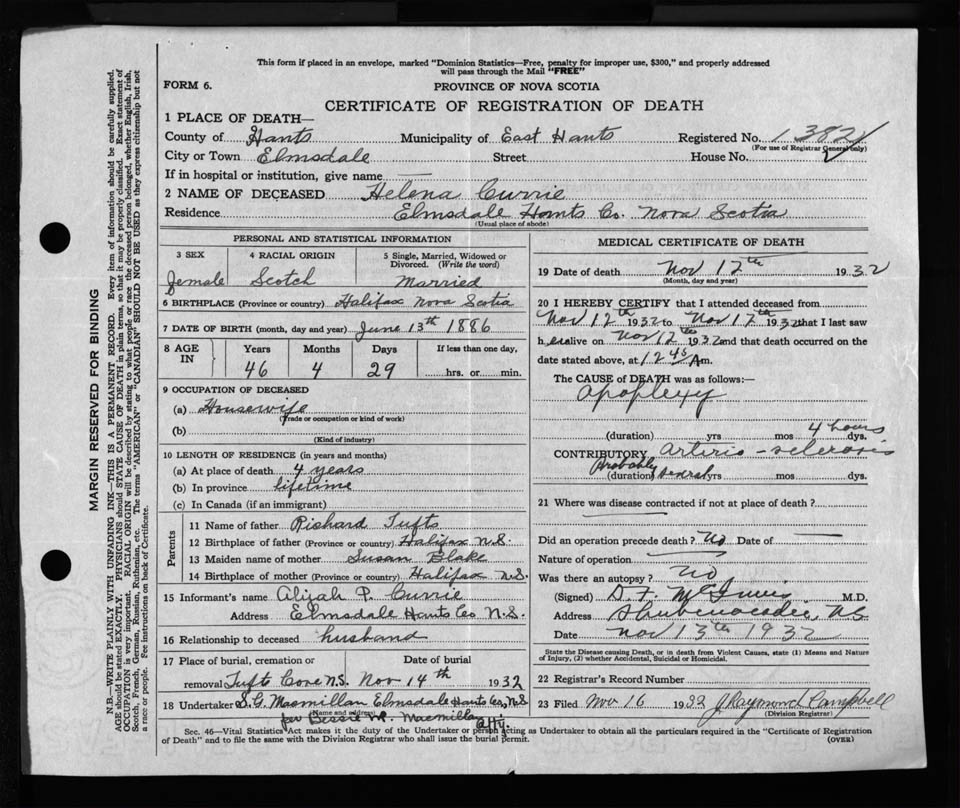 This form if placed in an envelope, marked "Dominion Statistics—Free, penalty for improper use, $300," and properly addressed
will pass through the Mail "FREE"
FORM 6.
PROVINCE OF NOVA SCOTIA
CERTIFICATE OF REGISTRATION OF DEATH
1 PLACE OF DEATH—
County of Hants Municipality of East Hants Registered No. 1382
(For use of Registrar General only)
City or Town Elmsdale Street House No.
If in hospital or institution, give name —
2 NAME OF DECEASED Helena Currie
Residence Elmsdale Hants Co. Nova Scotia
(Usual place of abode)
PERSONAL AND STATISTICAL INFORMATION
3 SEX 4 RACIAL ORIGIN 5 Single, Married, Widowed or Divorced. (Write the word)
Female Scotch Married
6 BIRTHPLACE (Province or country) Halifax Nova Scotia
7 DATE OF BIRTH (month, day and year) June 13th 1886
8 AGE IN Years Months Days If less than one day,
46 4 29 hrs. or min.
9 OCCUPATION OF DECEASED
(a) Housewife
(Trade or occupation or kind of work)
(b)
(Kind of industry)
10 LENGTH OF RESIDENCE (in years and months)
(a) At place of death 4 years
(b) In province lifetime
(c) In Canada (if an immigrant)
Parents
11 Name of father Rishard Tufts
12 Birthplace of father (Province or country) Halifax N.S.
13 Maiden name of mother Susan Blake
14 Birthplace of mother (Province or country) Halifax N.S.
15 Informant's name P. Currie
Address Elmsdale Hants Co N.S.
16 Relationship to deceased husband
17 Place of burial, cremation or removal Date of burial
Tufts Cove N.S. Nov 14th 1932
18 Undertaker S.G. Macmillan Elmsdale Hants Co, N.S
(Name and address)
per Bessie Macmillan atty.
MEDICAL CERTIFICATE OF DEATH
19 Date of death Nov 12th 1932
(Month, day and year)
20 I HEREBY CERTIFY that I attended deceased from
Nov 12th 1932 to Nov 12th 1932 that I last saw
her alive on Nov 12th 1932 and that death occurred on the
date stated above, at 12 45 Am.
The CAUSE of DEATH was as follows:—
apoplexy
(duration) yrs mos 4 hours dys.
CONTRIBUTORY arterio-sclerosis
(duration) Probably several yrs mos dys.
21 Where was disease contracted if not at place of death?
Did an operation precede death? No Date of —
Nature of operation —
Was there an autopsy? No
(Signed) D. F. M.D.
Address Shubenacadie, N.S
Date Nov 13th 1932
State the Disease causing Death, or in death from Violent Causes, state (1) Means and Nature
of Injury, (2) whether Accidental, Suicidal or Homicidal.
22 Registrar's Record Number
23 Filed Nov 16 1932 J Raymond Campbell
(Division Registrar)
Sec. 46—Vital Statistics Act makes it the duty of the Undertaker or person acting as Undertaker to obtain all the particulars required in the "Certificate of Registration
of Death" and to file the same with the Division Registrar who shall issue the burial permit.
(OVER)
MARGIN RESERVED FOR BINDING
N.B.—WRITE PLAINLY WITH UNFADING INK—THIS IS A PERMANENT RECORD. Every item of information should be carefully supplied.
AGE should be stated EXACTLY. PHYSICIANS should STATE CAUSE OF DEATH in plain terms, so that it may be properly classified. Exact statement of
OCCUPATION is very important. RACIAL ORIGIN will be described by stating to what people or race the deceased person belonged, whether English, Irish,
Scotch, French, German, Russian, Ruthenian, etc. The terms "AMERICAN" or "CANADIAN" SHOULD NOT BE USED as they express citizenship but not
a race or people. Fee instructions on back of Certificate.